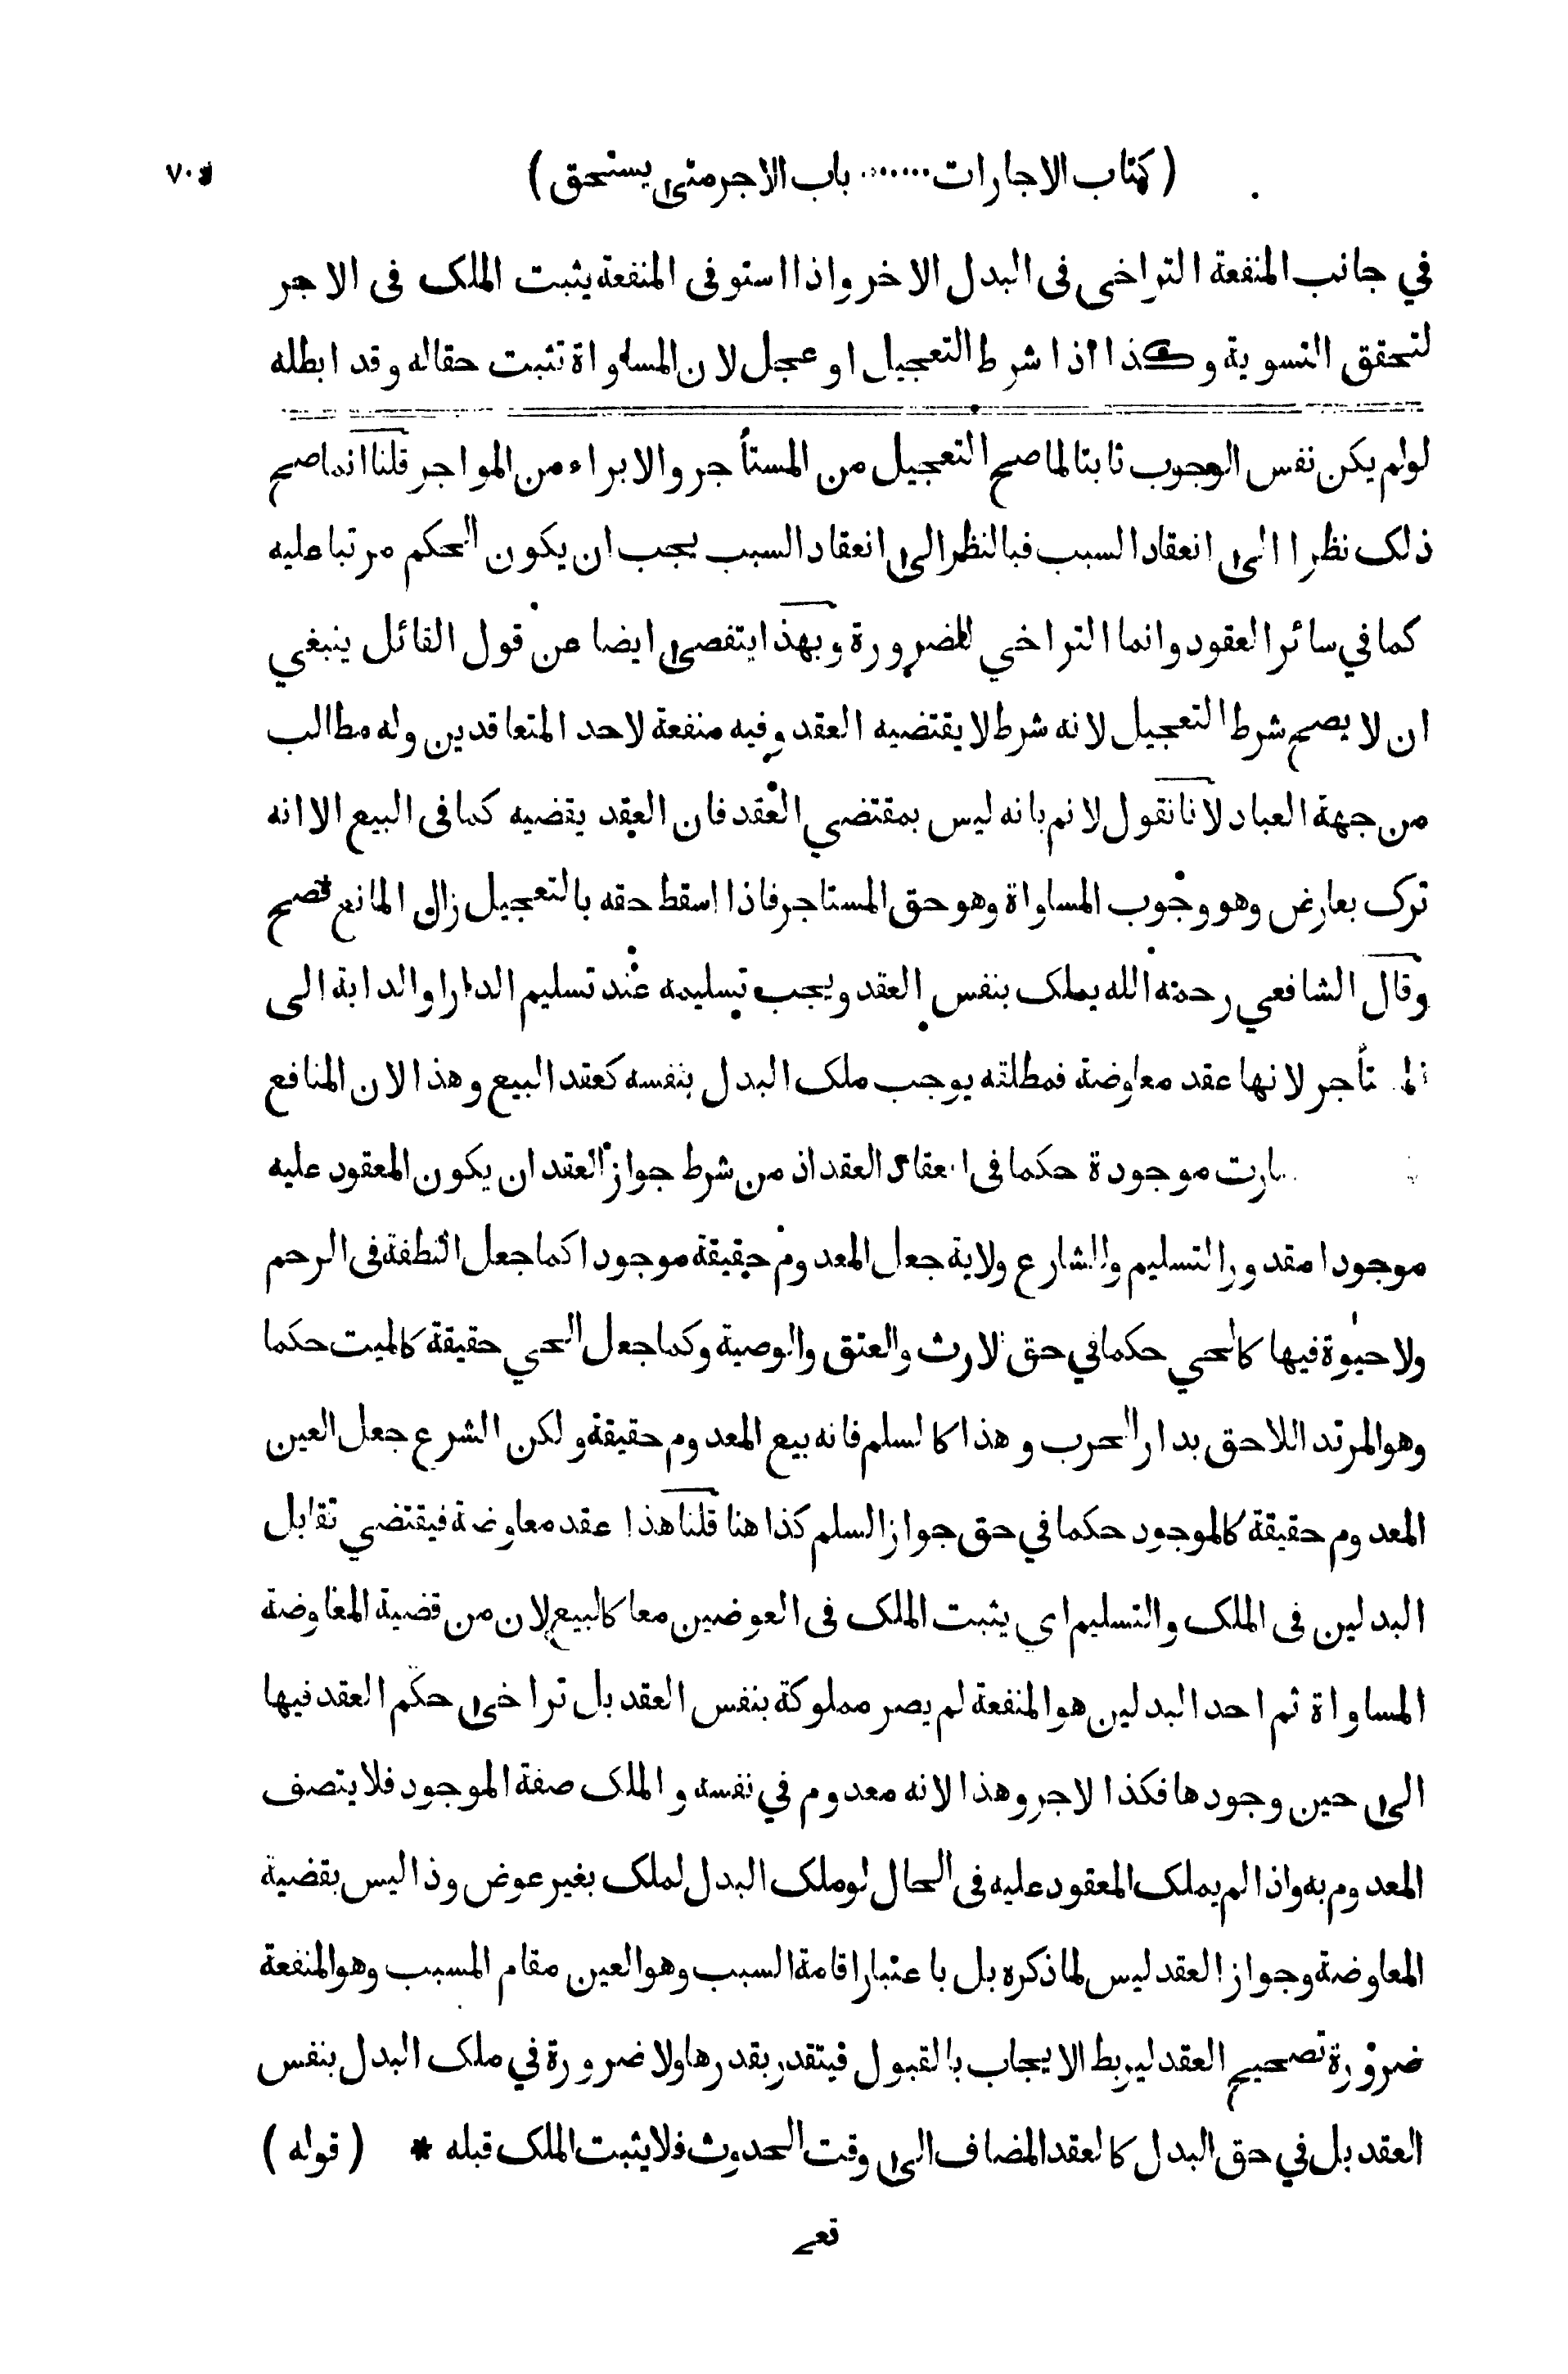 (كتاب الاجارات ....... باب الاجر متى يستحق)
في جانب المنفعة التراخى فى البدل الاخر واذا استوفى المنفعة يثبت الملك فى الاجر
لتحقق التسوية وكذا اذا شرط التعجيل او عجل لان المساواة تثبت حقا له وقد ابطله
لو لم يكن نفس الوجوب ثابتا لما صح التعجيل من المستأجر والابراء من المواجر قلنا انما صح
ذلك نظرا الى انعقاد السبب فبالنظر الى انعقاد السبب يجب ان يكون الحكم مرتبا عليه
كما في سائر العقود وانما التراخي للضرورة وبهذا يتفصى ايضا عن قول القائل ينبغي
ان لا يصح شرط التعجيل لانه شرط لا يقتضيه العقد وفيه منفعة لاحد المتعاقدين وله مطالب
من جهة العباد لانا نقول لا نم بانه ليس بمقتضي العقد فان العقد يقضيه كما فى البيع الا انه
ترك بعارض وهو وجوب المساواة وهو حق المستاجر فاذا اسقط حقه بالتعجيل زال المانع فصح
وقال الشافعي رحمه الله يملك بنفس العقد ويجب تسليمه عند تسليم الدار او الدابة الى
تأجر لانها عقد معاوضة فمطلقه يوجب ملك البدل بنفسه كعقد البيع وهذا لان المنافع
موجودة حكما فى انعقاد العقد اذ من شرط جواز العقد ان يكون المعقود عليه
موجودا مقدور التسليم وللشارع ولاية جعل المعدوم حقيقة موجودا كما جعل النطفة فى الرحم
ولا حيوة فيها كالحي حكما في حق الارث والعتق والوصية وكما جعل الحي حقيقة كالميت حكما
وهو المرتد اللاحق بدار الحرب وهذا كالسلم فانه بيع المعدوم حقيقة ولكن الشرع جعل العين
المعدوم حقيقة كالموجود حكما في حق جواز السلم كذا هنا قلنا هذا عقد معاوضة فيقتضي تقابل
البدلين فى الملك والتسليم اي يثبت الملك فى العوضين معا كالبيع لان من قضية المعاوضة
المساواة ثم احد البدلين هو المنفعة لم يصر مملوكة بنفس العقد بل تراخى حكم العقد فيها
الى حين وجودها فكذا الاجر وهذا لانه معدوم في نفسه والملك صفة الموجود فلا يتصف
المعدوم به واذا لم يملك المعقود عليه فى الحال لو ملك البدل لملك بغير عوض وذا ليس بقضية
المعاوضة وجواز العقد ليس لما ذكره بل باعتبار اقامة السبب وهو العين مقام المسبب وهو المنفعة
ضرورة تصحيح العقد ليربط الايجاب بالقبول فيتقدر بقدرها ولا ضرورة في ملك البدل بنفس
العقد بل في حق البدل كالعقد المضاف الى وقت الحدوث فلا يثبت الملك قبله * (قوله)